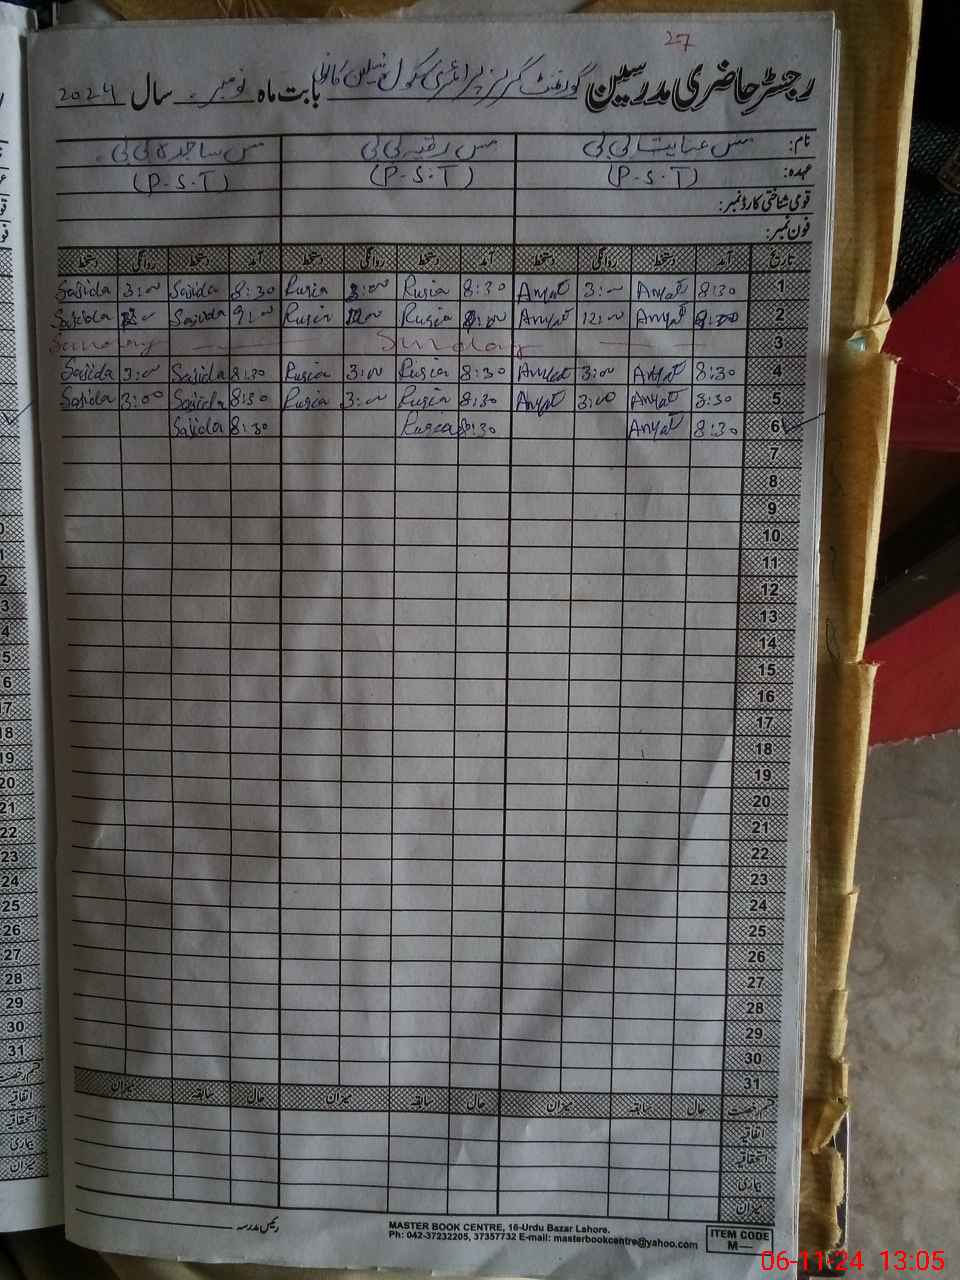 27
رجسٹر حاضری مدرسین گورنمنٹ گرلز پرائمری سکول بابت ماہ نومبر سال 2024
نام: مس عنایت بی بی مس رقیہ بی بی مس ساجدہ بی بی
عہدہ: (P-S-T) (P-S-T) (P-S-T)
قومی شناختی کارڈ نمبر:
فون نمبر:
تاریخ آمد دستخط روانگی دستخط آمد دستخط روانگی دستخط آمد دستخط روانگی دستخط
1 8:30 Anyat 3:00 Anyat 8:30 Ruqia 3:00 Ruqia 8:30 Sajida 3:00 Sajida
2 Anyat 12:00 Anyat Ruqia Ruqia 9:00 Sajida Sajida
3 Sunday Sunday
4 8:30 Anyat 3:00 Anyat 8:30 Ruqia 3:00 Ruqia 8:30 Sajida 3:00 Sajida
5 8:30 Anyat 3:00 Anyat 8:30 Ruqia 3:00 Ruqia 8:30 Sajida 3:00 Sajida
6 8:30 Anyat 8:30 Ruqia 8:30 Sajida
7
8
9
10
11
12
13
14
15
16
17
18
19
20
21
22
23
24
25
26
27
28
29
30
31
قسم رخصت حال سابقہ میزان حال سابقہ میزان حال سابقہ میزان
اتفاقیہ
استحقاقیہ
بیماری
میزان
رئیس مدرسہ
MASTER BOOK CENTRE, 16-Urdu Bazar Lahore.
Ph: 042-37232205, 37357732 E-mail: masterbookcentre@yahoo.com
ITEM CODE
M—
06-11-24 13:05